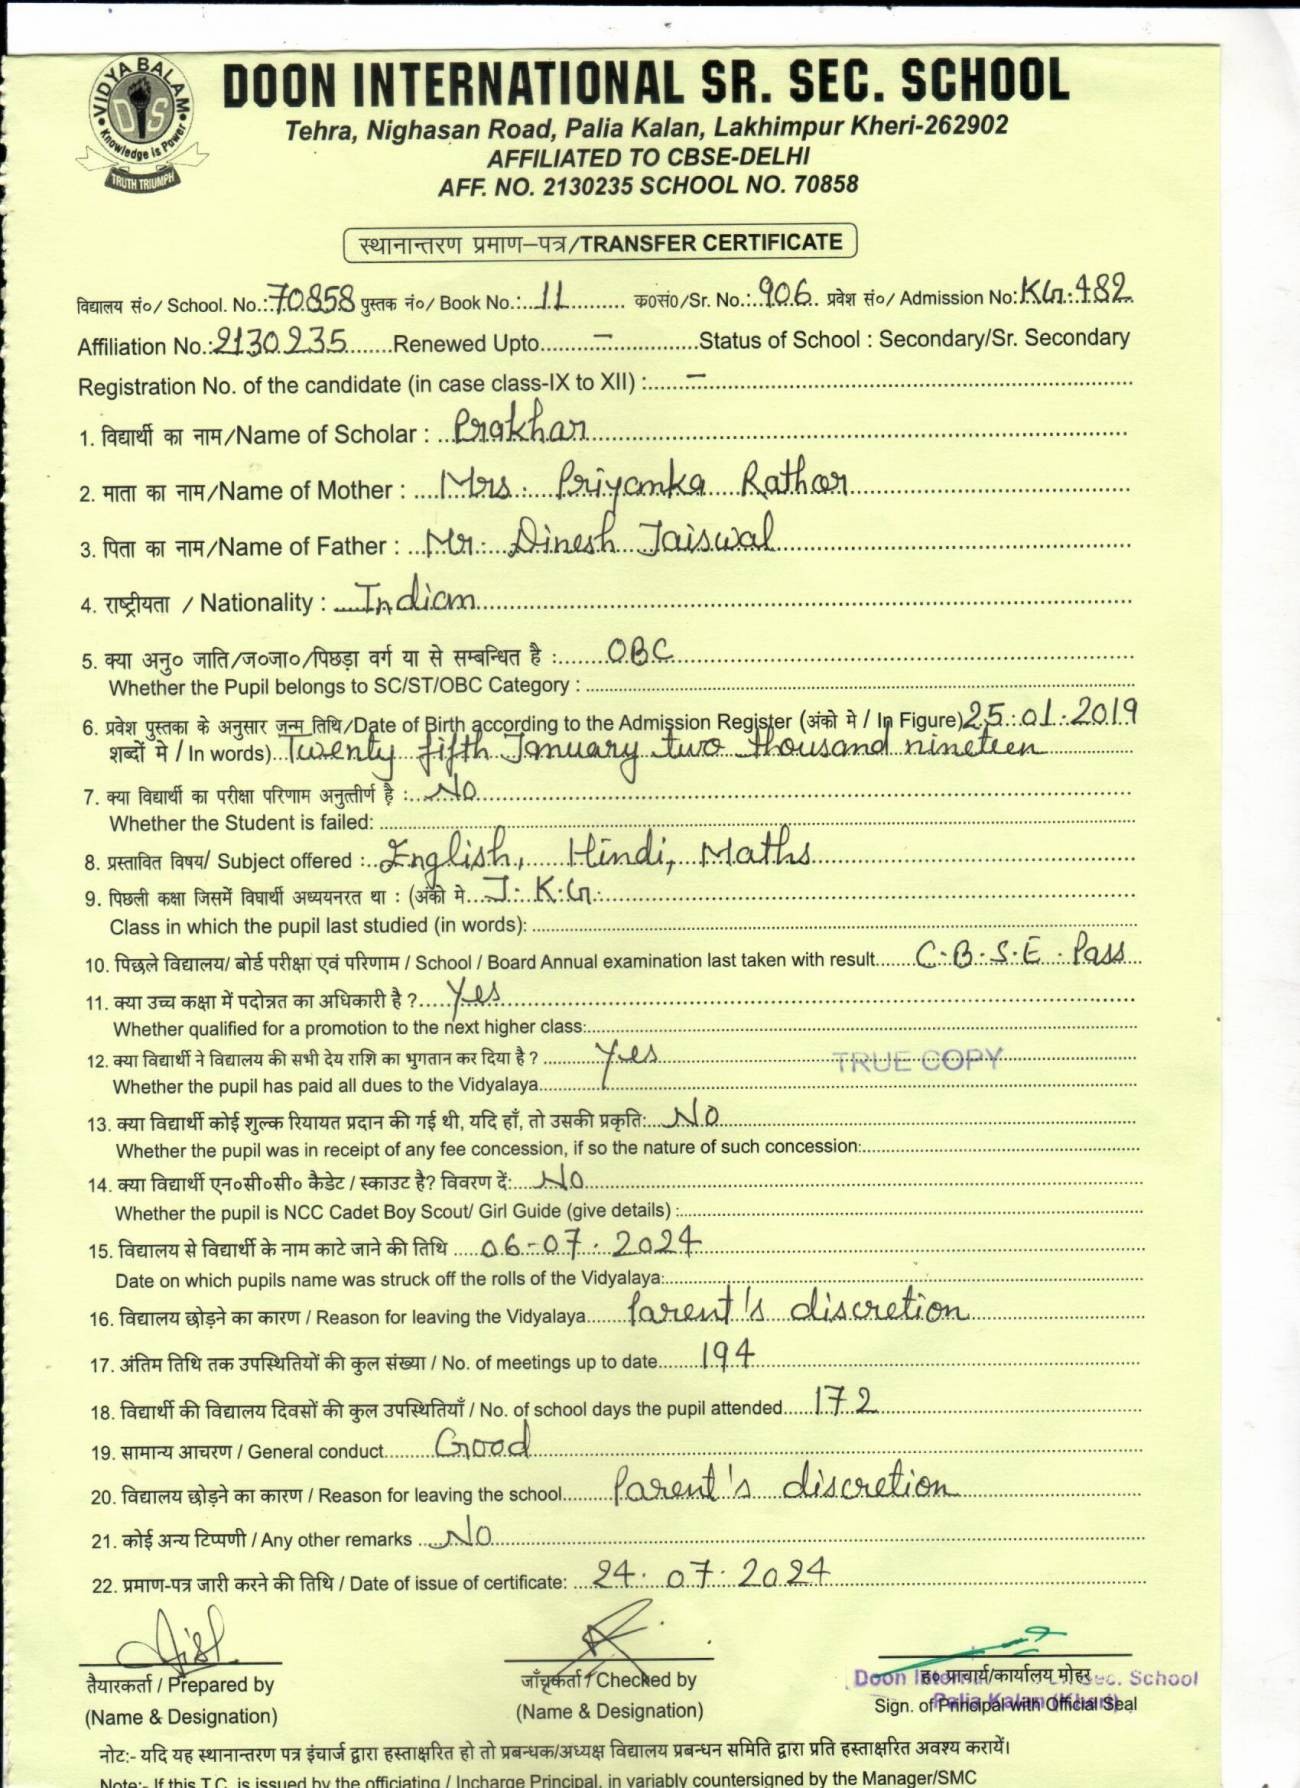 VIDYA BALAM
DIS
Knowledge is Power
TRUTH TRIUMPH
DOON INTERNATIONAL SR. SEC. SCHOOL
Tehra, Nighasan Road, Palia Kalan, Lakhimpur Kheri-262902
AFFILIATED TO CBSE-DELHI
AFF. NO. 2130235 SCHOOL NO. 70858
स्थानान्तरण प्रमाण–पत्र/TRANSFER CERTIFICATE
विद्यालय सं०/ School. No.: 70858 पुस्तक नं०/ Book No.: 11 क०सं०/Sr. No.: 906 प्रवेश सं०/ Admission No: KG-482
Affiliation No.: 2130235 Renewed Upto – Status of School : Secondary/Sr. Secondary
Registration No. of the candidate (in case class-IX to XII) : –
1. विद्यार्थी का नाम/Name of Scholar : Prakhar
2. माता का नाम/Name of Mother : Mrs. Priyanka Rathor
3. पिता का नाम/Name of Father : Mr. Dinesh Jaiswal
4. राष्ट्रीयता / Nationality : Indian
5. क्या अनु० जाति/ज०जा०/पिछड़ा वर्ग या से सम्बन्धित है : OBC
Whether the Pupil belongs to SC/ST/OBC Category :
6. प्रवेश पुस्तका के अनुसार जन्म तिथि/Date of Birth according to the Admission Register (अंको मे / In Figure) 25.01.2019
शब्दों मे / In words) Twenty fifth January two thousand nineteen
7. क्या विद्यार्थी का परीक्षा परिणाम अनुत्तीर्ण है : No
Whether the Student is failed:
8. प्रस्तावित विषय/ Subject offered : English, Hindi, Maths
9. पिछली कक्षा जिसमें विधार्थी अध्ययनरत था : (अंको मे J.K.G.
Class in which the pupil last studied (in words):
10. पिछले विद्यालय/ बोर्ड परीक्षा एवं परिणाम / School / Board Annual examination last taken with result C.B.S.E. Pass
11. क्या उच्च कक्षा में पदोन्नत का अधिकारी है ? Yes
Whether qualified for a promotion to the next higher class:
12. क्या विद्यार्थी ने विद्यालय की सभी देय राशि का भुगतान कर दिया है ? Yes
TRUE COPY
Whether the pupil has paid all dues to the Vidyalaya
13. क्या विद्यार्थी कोई शुल्क रियायत प्रदान की गई थी, यदि हाँ, तो उसकी प्रकृति: No
Whether the pupil was in receipt of any fee concession, if so the nature of such concession:
14. क्या विद्यार्थी एन०सी०सी० कैडेट / स्काउट है? विवरण दें: No
Whether the pupil is NCC Cadet Boy Scout/ Girl Guide (give details) :
15. विद्यालय से विद्यार्थी के नाम काटे जाने की तिथि 06-07-2024
Date on which pupils name was struck off the rolls of the Vidyalaya:
16. विद्यालय छोड़ने का कारण / Reason for leaving the Vidyalaya Parent's discretion
17. अंतिम तिथि तक उपस्थितियों की कुल संख्या / No. of meetings up to date 194
18. विद्यार्थी की विद्यालय दिवसों की कुल उपस्थितियाँ / No. of school days the pupil attended 172
19. सामान्य आचरण / General conduct Good
20. विद्यालय छोड़ने का कारण / Reason for leaving the school Parent's discretion
21. कोई अन्य टिप्पणी / Any other remarks No
22. प्रमाण-पत्र जारी करने की तिथि / Date of issue of certificate: 24.07.2024
तैयारकर्ता / Prepared by
(Name & Designation)
जाँचकर्ता / Checked by
(Name & Designation)
Doon Sec. School
Palia Kalan (Kheri)
ह० प्राचार्य/कार्यालय मोहर
Sign. of Principal with Official Seal
नोट:- यदि यह स्थानान्तरण पत्र इंचार्ज द्वारा हस्ताक्षरित हो तो प्रबन्धक/अध्यक्ष विद्यालय प्रबन्धन समिति द्वारा प्रति हस्ताक्षरित अवश्य करायें।
Note:- If this T.C. is issued by the officiating / Incharge Principal, in variably countersigned by the Manager/SMC